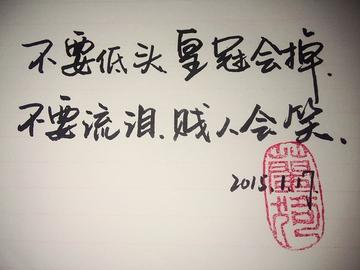 不要低头.皇冠会掉.
不要流泪.贱人会笑.
2015.1.17.